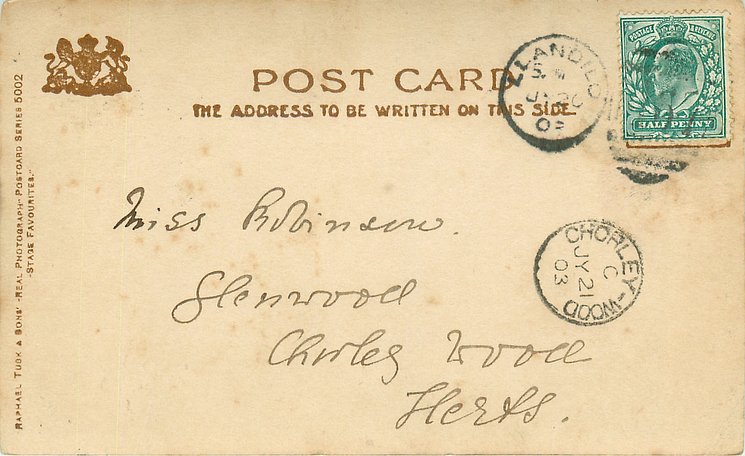 POST CARD
THE ADDRESS TO BE WRITTEN ON THIS SIDE.
LLANDILO
JY 20
03
POSTAGE & REVENUE
HALF PENNY
Miss Robinson.
Glenwood
Chorley Wood
Herts.
CHORLEY-WOOD
C
JY 21
03
RAPHAEL TUCK & SONS' "REAL PHOTOGRAPH" POSTCARD SERIES 5002
"STAGE FAVOURITES."